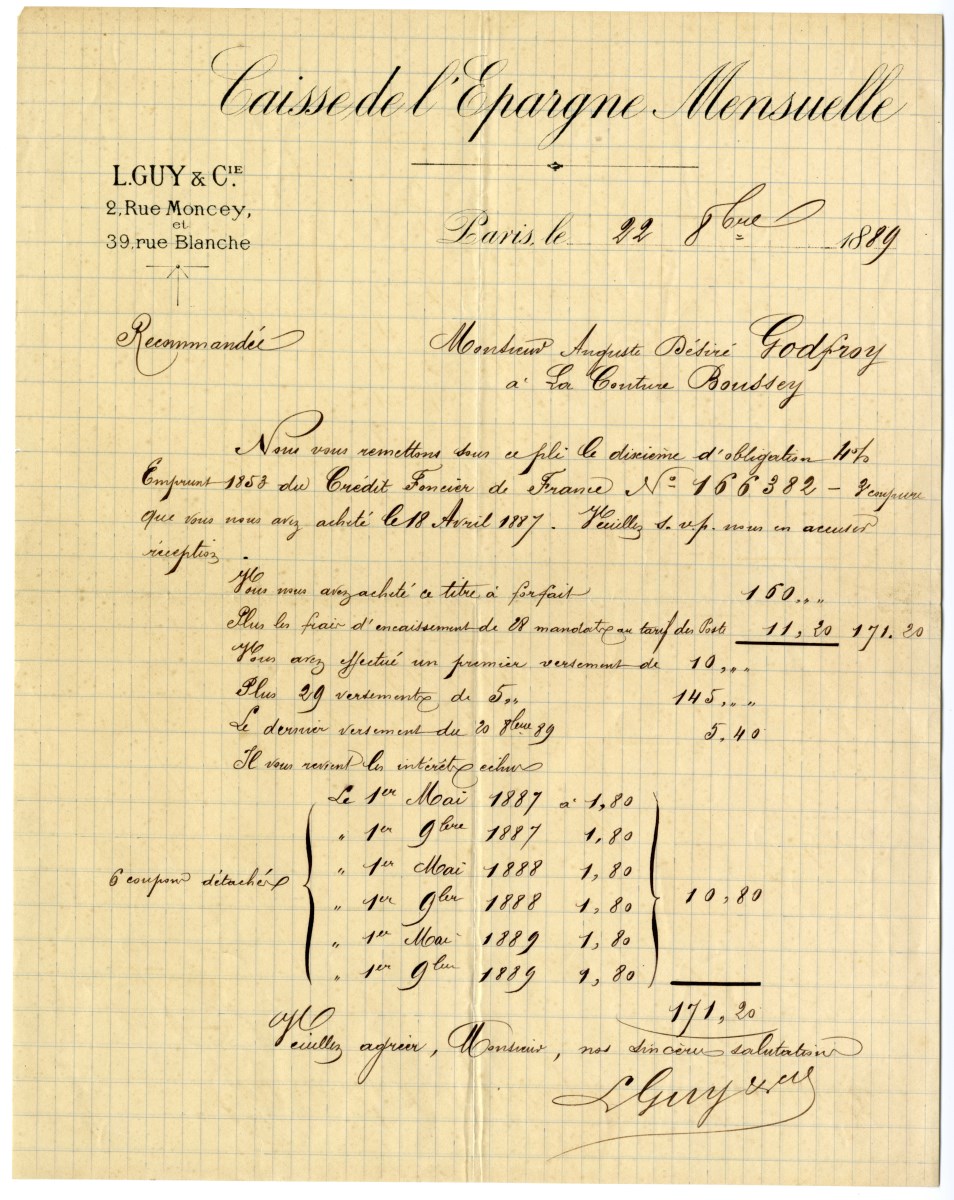 Caisse de l'Epargne Mensuelle
L. GUY & CIE.
2, Rue Moncey,
et
39, rue Blanche
Paris, le 22 8bre 1889
Recommandée
Monsieur Auguste Désiré Godfroy
à La Couture Boussey
Nous vous remettons sous ce pli le dixième d'obligation 4%
Emprunt 1853 du Crédit Foncier de France No 166382 - coupure
que vous nous avez acheté le 18 Avril 1887. Veuillez s.v.p. nous en accuser
réception.
Vous nous avez acheté ce titre à forfait 160 „ „
Plus les frais d'encaissement de 28 mandats au tarif des Poste 11,20 171.20
Vous avez effectué un premier versement de 10 „ „
Plus 29 versements de 5 „ 145 „ „
Le dernier versement du 20 8bre 89 5,40
Il vous revient les intérêts echus
6 coupons détachés
Le 1er Mai 1887 à 1,80
„ 1er 9bre 1887 1,80
„ 1er Mai 1888 1,80
„ 1er 9bre 1888 1,80
„ 1er Mai 1889 1,80
„ 1er 9bre 1889 1,80
10,80
171,20
Veuillez agréer, Monsieur, nos sincères salutations
L Guy & Cie